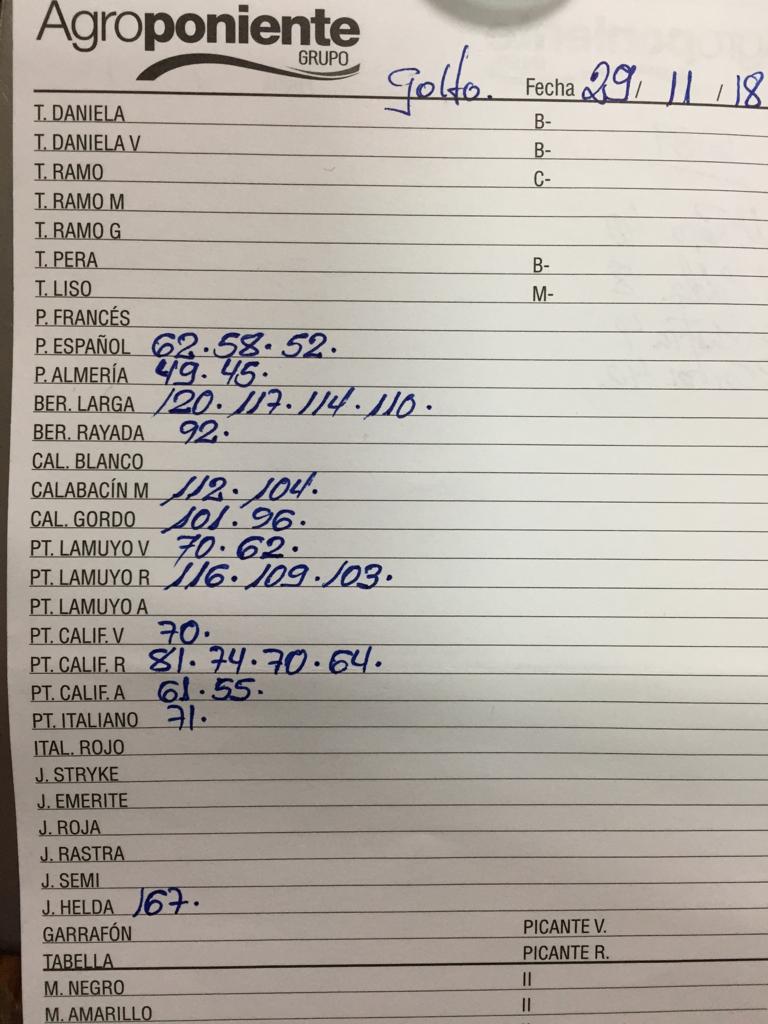 Agroponiente
GRUPO
Golfo. Fecha 29/ 11 /18
T. DANIELA B-
T. DANIELA V B-
T. RAMO C-
T. RAMO M
T. RAMO G
T. PERA B-
T. LISO M-
P. FRANCÉS
P. ESPAÑOL 62. 58. 52.
P. ALMERÍA 49. 45.
BER. LARGA 120. 117. 114. 110.
BER. RAYADA 92.
CAL. BLANCO
CALABACÍN M 112. 104.
CAL. GORDO 101. 96.
PT. LAMUYO V 70. 62.
PT. LAMUYO R 116. 109. 103.
PT. LAMUYO A
PT. CALIF. V 70.
PT. CALIF. R 81. 74. 70. 64.
PT. CALIF. A 61. 55.
PT. ITALIANO 71.
ITAL. ROJO
J. STRYKE
J. EMERITE
J. ROJA
J. RASTRA
J. SEMI
J. HELDA 167.
GARRAFÓN PICANTE V.
TABELLA PICANTE R.
M. NEGRO II
M. AMARILLO II